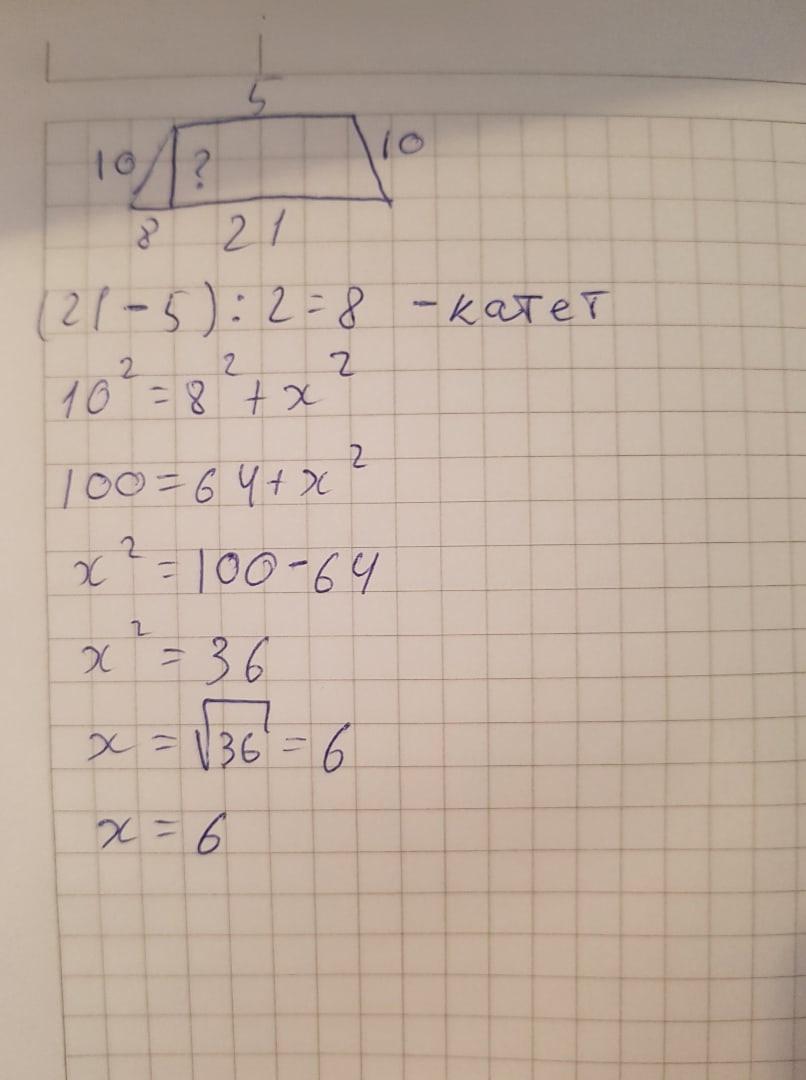 5
10 ? 10
8 21
(21-5):2=8 -катет
10²=8²+x²
100=64+x²
x²=100-64
x²=36
x=√36=6
x=6